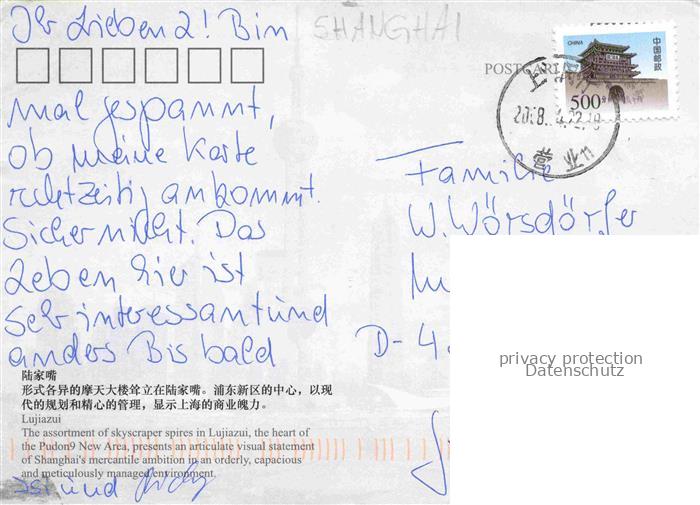 SHANGHAI
Ihr Lieben 2! Bin
mal gespannt,
ob meine Karte
rechtzeitig ankommt.
Sicher nicht. Das
Leben hier ist
sehr interessant und
anders Bis bald
陆家嘴
形式各异的摩天大楼耸立在陆家嘴。浦东新区的中心，以现
代的规划和精心的管理，显示上海的商业魄力。
Lujiazui
The assortment of skyscraper spires in Lujiazui, the heart of
the Pudon9 New Area, presents an articulate visual statement
of Shanghai's mercantile ambition in an orderly, capacious
and meticulously managed environment.
und
POSTCARD
CHINA
中国邮政
500分
上海
营业
Familie
W. Wörsdörfer
D-4
privacy protection
Datenschutz